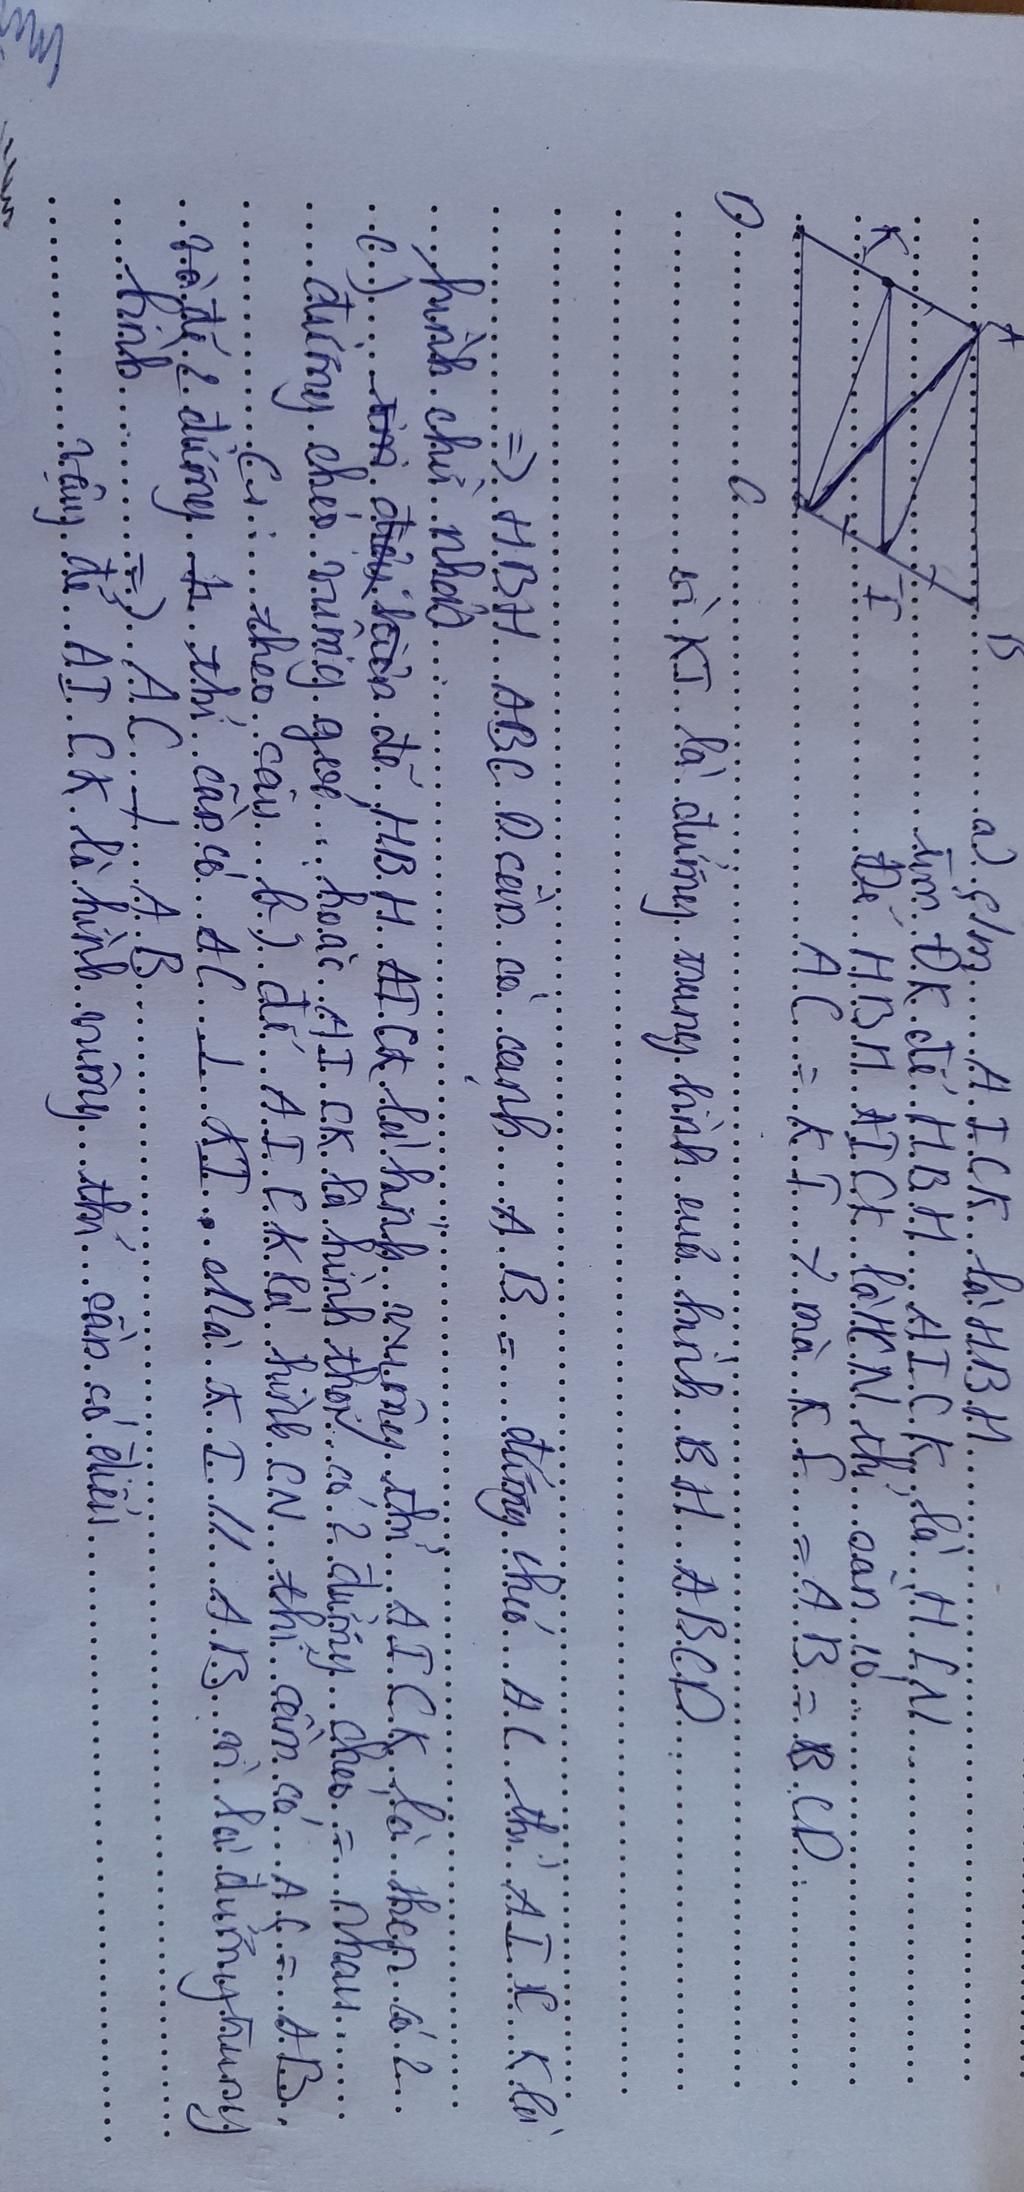 A
B
K
I
D
C
a) c/m AICK là HBH
tìm ĐK để HBH AICK là HCN
Để HBH AICK là HCN thì cần có
AC = KI, mà KI = AB = CD
vì KI là đường trung bình của hình BH ABCD
=) HBH ABCD cần có cạnh AB = đường chéo AC thì AICK là
hình chữ nhật
c) để HBH AICK là hình vuông thì AICK là có 2
đường chéo vuông góc, hoặc AICK là hình thoi có 2 đường chéo = nhau
theo câu b) để AICK là hình CN thì cần có AC = AB.
và để 2 đường thì cần có AC ⊥ KI. Mà KI // AB vì là đường trung
bình =) AC ⊥ AB
vậy để AICK là hình vuông thì cần có điều